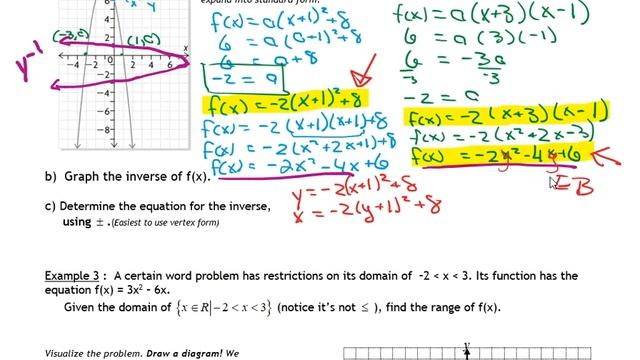 expand into standard form.
x y
6
4
2
(-3,0) (1,0) x
-4 -2 2 4 6
-2
-4
-6
-8
y⁻¹
f(x) = a(x+1)² + 8
6 = a(0+1)² + 8
6 = a + 8
-2 = a
f(x) = -2(x+1)² + 8
f(x) = -2(x+1)(x+1) + 8
f(x) = -2(x² + 2x + 1) + 8
f(x) = -2x² - 4x + 6
f(x) = a(x+3)(x-1)
6 = a(3)(-1)
6 = -3a
-3 -3
-2 = a
f(x) = -2(x+3)(x-1)
f(x) = -2(x² + 2x - 3)
f(x) = -2x² - 4x + 6
y y
EB
b) Graph the inverse of f(x).
y = -2(x+1)² + 8
x = -2(y+1)² + 8
c) Determine the equation for the inverse,
using ± . (Easiest to use vertex form)
Example 3 : A certain word problem has restrictions on its domain of -2 < x < 3. Its function has the
equation f(x) = 3x² - 6x.
Given the domain of {x ∈ R| - 2 < x < 3} (notice it's not ≤ ), find the range of f(x).
Visualize the problem. Draw a diagram! We
y